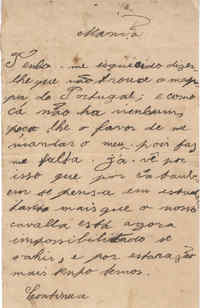 Mamã
Tenho-me esquecido dizer
lhe que não trouxe o mappa
de Portugal; e como
cá não ha nenhum,
peço lhe o favor de me
mandar o meu pois faz
me falta. Já vê por
isso que por
em se pensa em
mais que o nosso
cavallo está agora
impossibilitado de
sahir, e por
mais tempo temos.
Continua